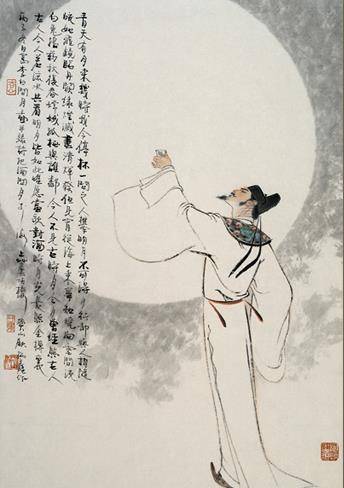 青天有月來幾時我今停杯一問之人攀明月不可得月行卻與人相隨
皎如飛鏡臨丹闕綠煙滅盡清輝發但見宵從海上來寧知曉向雲間沒
白兔搗藥秋復春嫦娥孤棲與誰鄰今人不見古時月今月曾經照古人
古人今人若流水共看明月皆如此唯願當歌對酒時月光長照金樽裏
李白問月